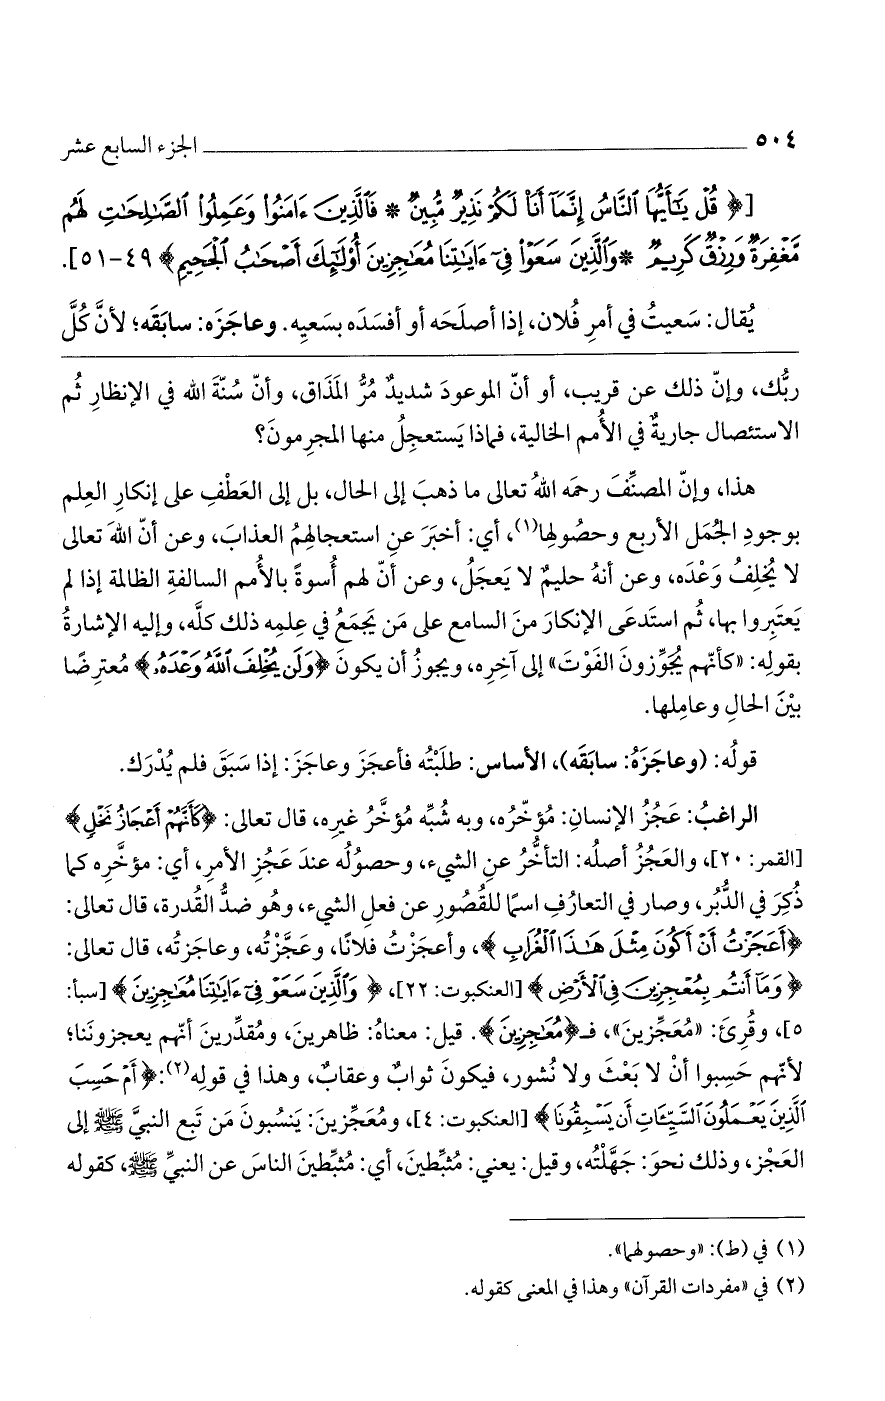 ٥٠٤ الجزء السابع عشر
[﴿ قُلْ يَٰٓأَيُّهَا ٱلنَّاسُ إِنَّمَآ أَنَا۠ لَكُمْ نَذِيرٌ مُّبِينٌ * فَٱلَّذِينَ ءَامَنُوا۟ وَعَمِلُوا۟ ٱلصَّٰلِحَٰتِ لَهُم
مَّغْفِرَةٌ وَرِزْقٌ كَرِيمٌ * وَٱلَّذِينَ سَعَوْا۟ فِىٓ ءَايَٰتِنَا مُعَٰجِزِينَ أُو۟لَٰٓئِكَ أَصْحَٰبُ ٱلْجَحِيمِ﴾ ٤٩-٥١].
يُقال: سَعيتُ في أمرِ فُلان، إذا أصلَحَه أو أفسَدَه بسَعيِه. وعاجَزَه: سابَقَه؛ لأنَّ كُلَّ
ربُّك، وإنّ ذلك عن قريب، أو أنّ الموعودَ شديدٌ مُرُّ المَذَاق، وأنّ سُنّةَ الله في الإنظارِ ثُم
الاستئصال جاريةٌ في الأُمم الخالية، فماذا يَستعجِلُ منها المجرمونَ؟
هذا، وإنّ المصنِّفَ رحمَه اللهُ تعالى ما ذهبَ إلى الحال، بل إلى العَطْفِ على إنكارِ العِلم
بوجودِ الجُمَل الأربع وحصُولِها(١)، أي: أخبَرَ عنِ استعجالهِمُ العذابَ، وعن أنّ اللهَ تعالى
لا يُخلِفُ وَعْدَه، وعن أنهُ حليمٌ لا يَعجَلُ، وعن أنّ لهم أُسوةً بالأُمم السالفةِ الظالمة إذا لم
يَعتبِروا بها، ثُم استَدعَى الإنكارَ منَ السامع على مَن يَجمَعُ في عِلمِه ذلك كلَّه، وإليه الإشارةُ
بقولِه: «كأنّهم يُجَوِّزونَ الفَوْتَ» إلى آخِرِه، ويجوزُ أن يكونَ ﴿وَلَن يُخْلِفَ ٱللَّهُ وَعْدَهُۥ﴾ مُعترِضًا
بيْنَ الحالِ وعاملِها.
قولُه: (وعاجَزَهُ: سابَقَه)، الأساس: طلَبْتُه فأعجَزَ وعاجَزَ: إذا سَبَقَ فلم يُدْرَك.
الراغبُ: عَجُزُ الإنسانِ: مُؤخّرُه، وبه شُبِّه مُؤخَّرُ غيرِه، قال تعالى: ﴿كَأَنَّهُمْ أَعْجَازُ نَخْلٍ﴾
[القمر: ٢٠]، والعَجْزُ أصلُه: التأخُّرُ عنِ الشيء، وحصوُلُه عندَ عَجُزِ الأمرِ، أي: مؤخَّرِه كما
ذُكِرَ في الدُّبُر، وصار في التعارُفِ اسمًا للقُصُورِ عن فعلِ الشيء، وهُو ضدُّ القُدرة، قال تعالى:
﴿أَعَجَزْتُ أَنْ أَكُونَ مِثْلَ هَٰذَا ٱلْغُرَابِ ﴾، وأعجَزْتُ فلانًا، وعَجَّزْتُه، وعاجَزتُه، قال تعالى:
﴿ وَمَآ أَنتُم بِمُعْجِزِينَ فِى ٱلْأَرْضِ ﴾ [العنكبوت: ٢٢]، ﴿ وَٱلَّذِينَ سَعَوْ فِىٓ ءَايَٰتِنَا مُعَٰجِزِينَ ﴾ [سبأ:
٥]، وقُرِئَ: «مُعَجِّزينَ»، فـ﴿مُعَٰجِزِينَ ﴾. قيل: معناهُ: ظاهرينَ، ومُقدِّرينَ أنّهم يعجزونَنا؛
لأنّهم حَسِبوا أنْ لا بَعْثَ ولا نُشور، فيكونَ ثوابٌ وعقابٌ، وهذا في قولِه(٢): ﴿أَمْ حَسِبَ
ٱلَّذِينَ يَعْمَلُونَ ٱلسَّيِّـَٔاتِ أَن يَسْبِقُونَا ﴾ [العنكبوت: ٤]، ومُعَجِّزينَ: يَنسُبونَ مَن تَبِع النبيَّ ﷺ إلى
العَجْز، وذلك نحوَ: جَهَّلْتُه، وقيل: يعني: مُثبِّطينَ، أي: مُثبِّطينَ الناسَ عن النبيِّ ﷺ، كقوله
(١) في (ط): «وحصولهما».
(٢) في «مفردات القرآن» وهذا في المعنى كقوله.